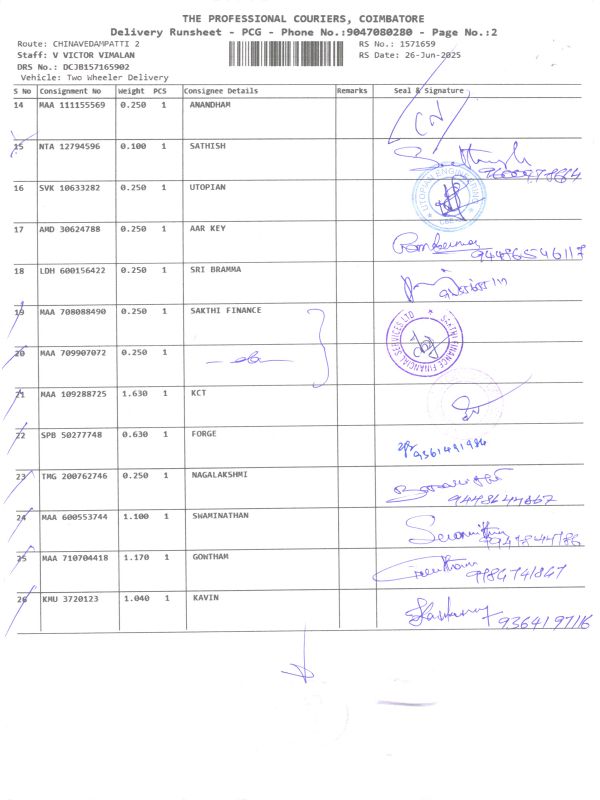 THE PROFESSIONAL COURIERS, COIMBATORE
Delivery Runsheet - PCG - Phone No.:9047080280 - Page No.:2
Route: CHINAVEDAMPATTI 2 RS No.: 1571659
Staff: V VICTOR VIMALAN RS Date: 26-Jun-2025
DRS No.: DCJB157165902
Vehicle: Two Wheeler Delivery
S No Consignment No Weight PCS Consignee Details Remarks Seal & Signature
14 MAA 111155569 0.250 1 ANANDHAM
15 NTA 12794596 0.100 1 SATHISH
16 SVK 10633282 0.250 1 UTOPIAN
UTOPIAN ENGINEERING
17 AMD 30624788 0.250 1 AAR KEY
18 LDH 600156422 0.250 1 SRI BRAMMA
19 MAA 708088490 0.250 1 SAKTHI FINANCE
SAKTHI FINANCE FINANCIAL SERVICES LTD
20 MAA 709907072 0.250 1 do
21 MAA 109288725 1.630 1 KCT
22 SPB 50277748 0.630 1 FORGE
23 TMG 200762746 0.250 1 NAGALAKSHMI
24 MAA 600553744 1.100 1 SWAMINATHAN
25 MAA 710704418 1.170 1 GOWTHAM 9786741847
26 KMU 3720123 1.040 1 KAVIN 9364197116